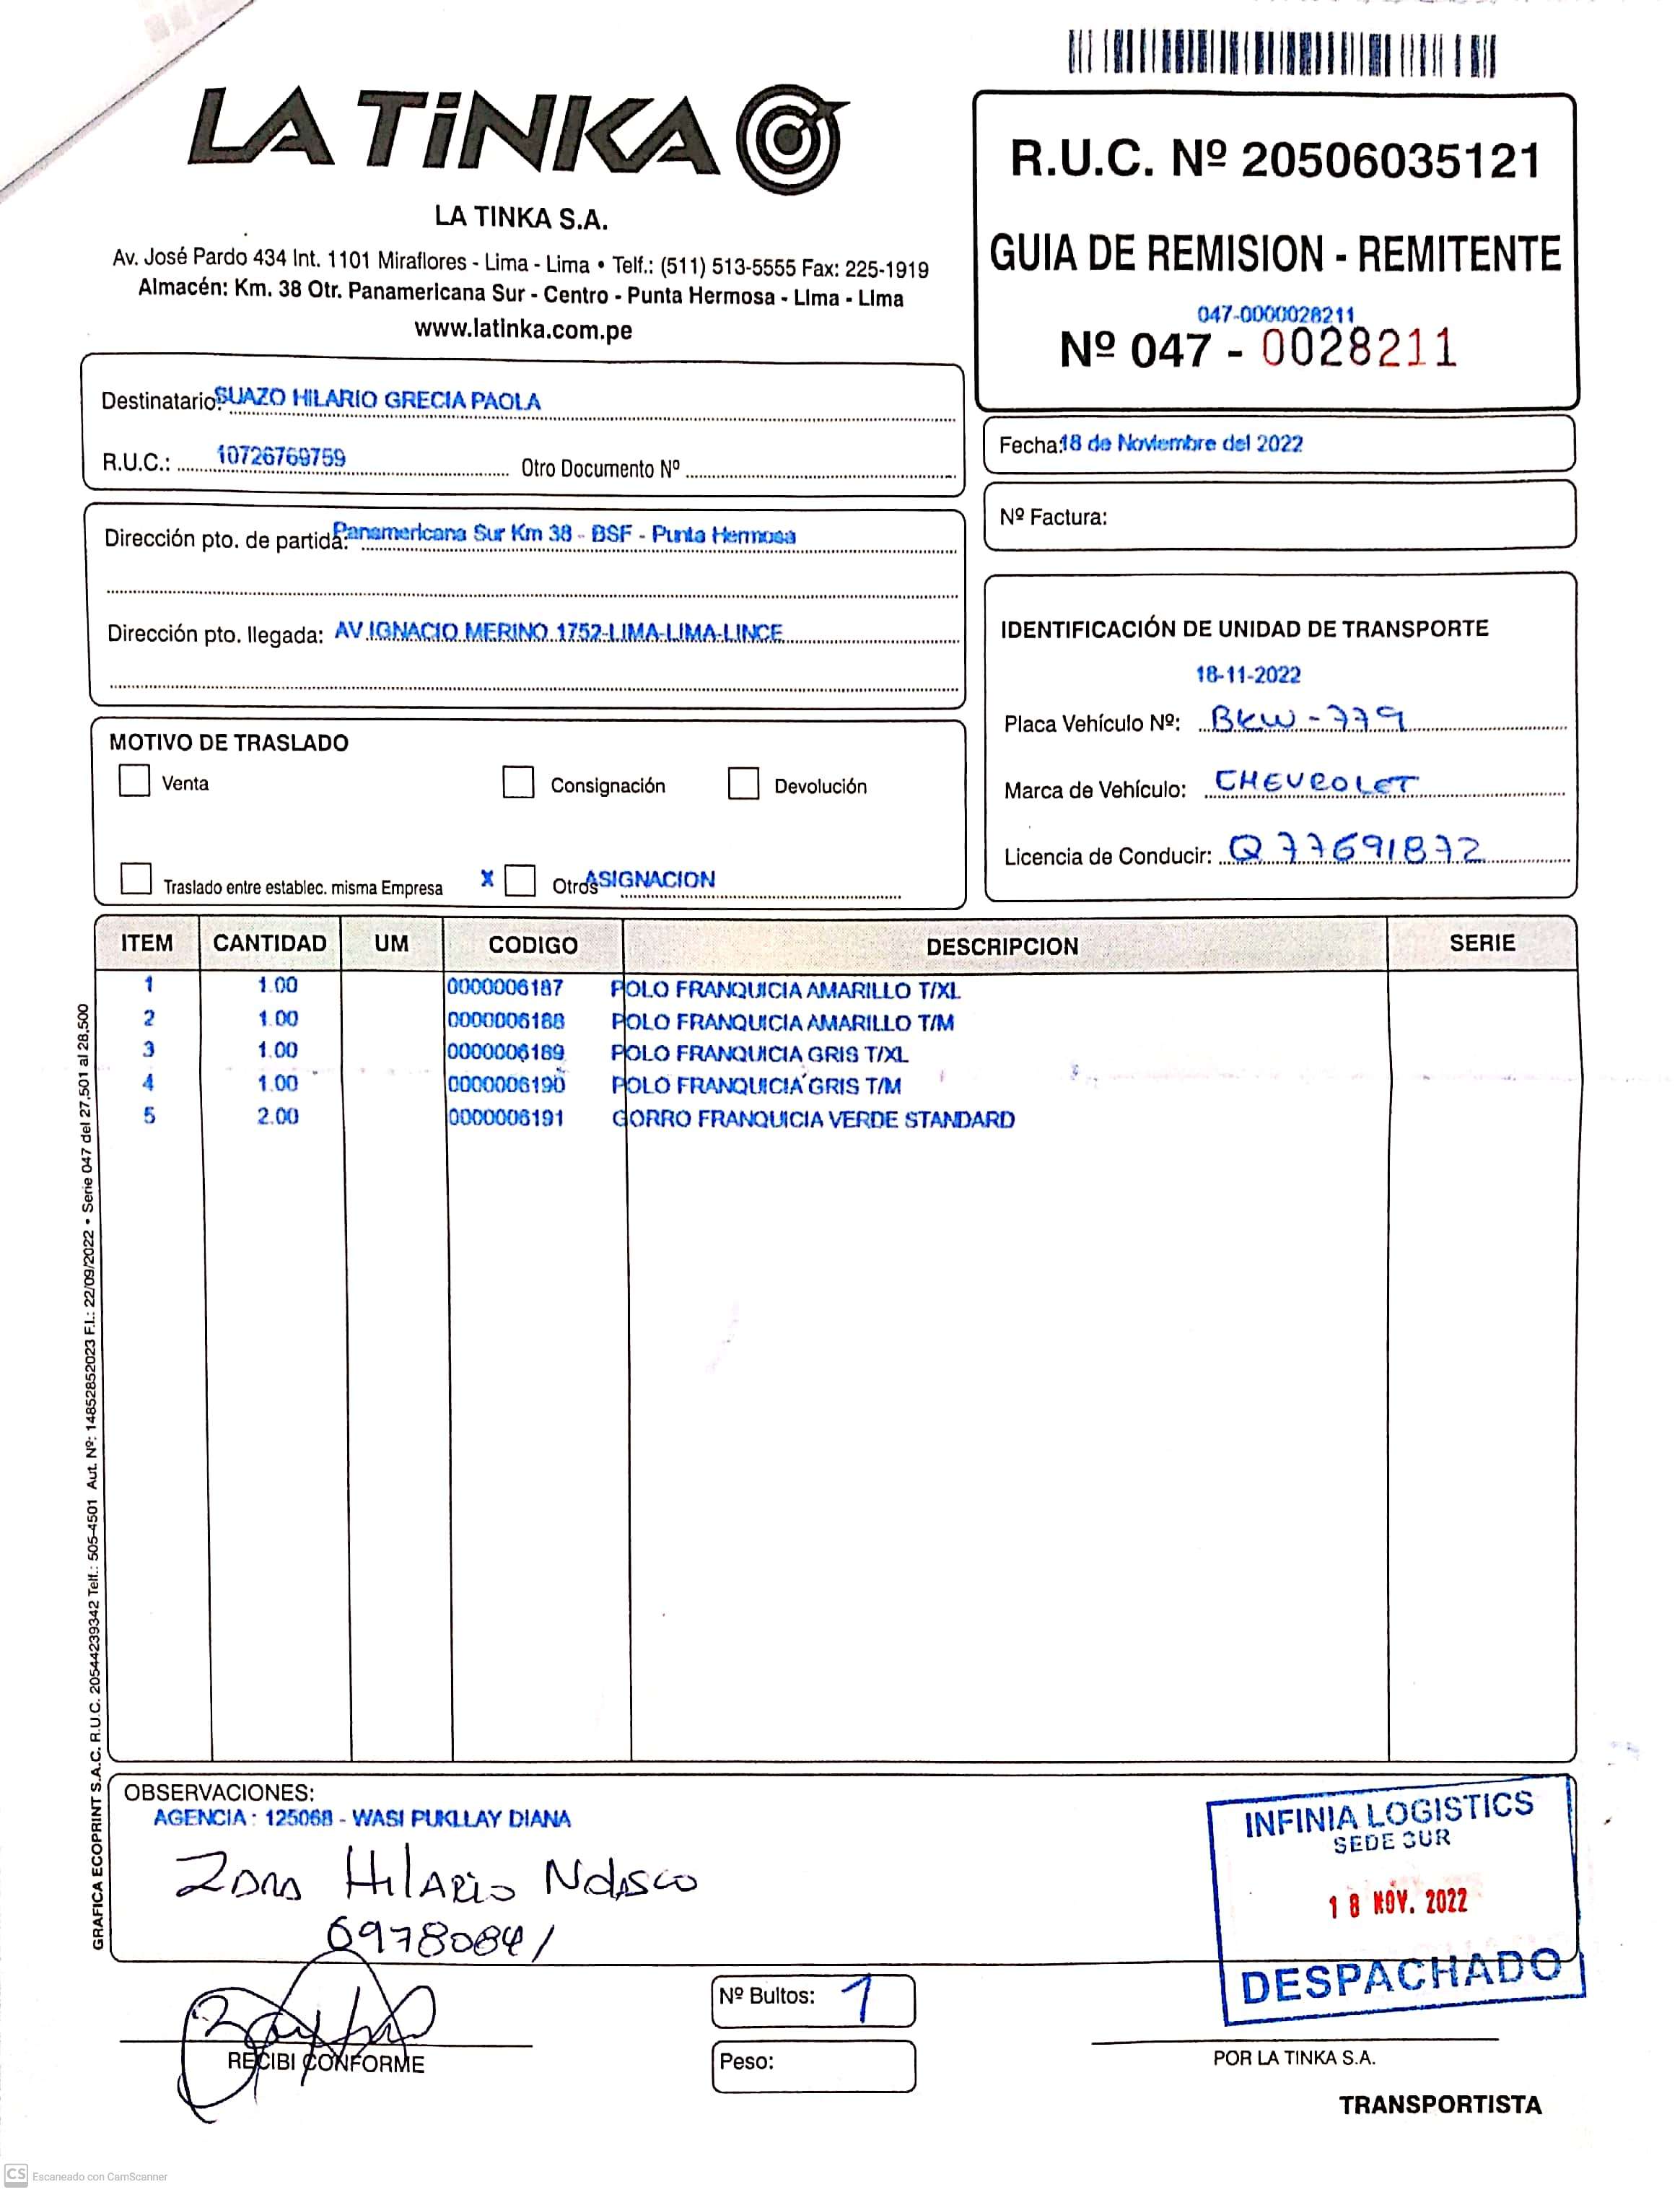 LA TiNKA
LA TINKA S.A.
Av. José Pardo 434 Int. 1101 Miraflores - Lima - Lima • Telf.: (511) 513-5555 Fax: 225-1919
Almacén: Km. 38 Otr. Panamericana Sur - Centro - Punta Hermosa - Lima - Lima
www.latinka.com.pe
R.U.C. Nº 20506035121
GUIA DE REMISION - REMITENTE
047-0000028211
Nº 047 - 0028211
Destinatario: SUAZO HILARIO GRECIA PAOLA
R.U.C.: 10726769759 Otro Documento Nº
Fecha: 18 de Noviembre del 2022
Nº Factura:
Dirección pto. de partida: Panamericana Sur Km 38 - BSF - Punta Hermosa
Dirección pto. llegada: AV.IGNACIO MERINO 1752-LIMA-LIMA-LINCE
IDENTIFICACIÓN DE UNIDAD DE TRANSPORTE
18-11-2022
Placa Vehículo Nº: BKW-779
Marca de Vehículo: CHEVROLET
Licencia de Conducir: Q77691872
MOTIVO DE TRASLADO
Venta Consignación Devolución
Traslado entre establec. misma Empresa X Otros ASIGNACION
ITEM CANTIDAD UM CODIGO DESCRIPCION SERIE
1 1.00 0000006187 POLO FRANQUICIA AMARILLO T/XL
2 1.00 0000006188 POLO FRANQUICIA AMARILLO T/M
3 1.00 0000006189 POLO FRANQUICIA GRIS T/XL
4 1.00 0000006190 POLO FRANQUICIA GRIS T/M
5 2.00 0000006191 GORRO FRANQUICIA VERDE STANDARD
GRAFICA ECOPRINT S.A.C. R.U.C. 20544239342 Telf.: 505-4501 Aut. Nº: 14852852023 F.I.: 22/09/2022 • Serie 047 del 27,501 al 28,500
OBSERVACIONES:
AGENCIA : 125068 - WASI PUKLLAY DIANA
Hilario Nolasco
INFINIA LOGISTICS
SEDE SUR
18 NOV. 2022
DESPACHADO
RECIBI CONFORME
Nº Bultos: 1
Peso:
POR LA TINKA S.A.
TRANSPORTISTA
CS Escaneado con CamScanner